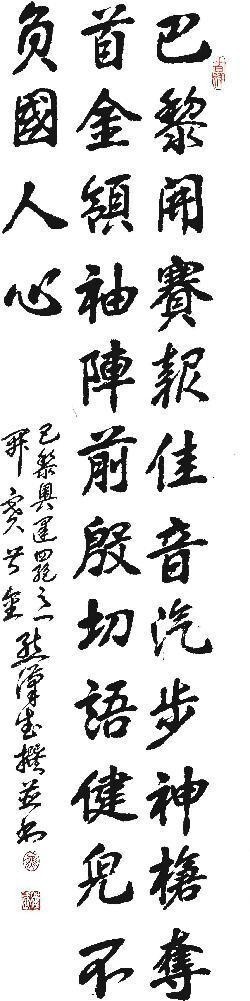 巴黎開賽報佳音汽步神槍奪
首金領袖陣前殷切語健兒不
負國人心
巴黎奧運四絕之一
熊漢武撰並書